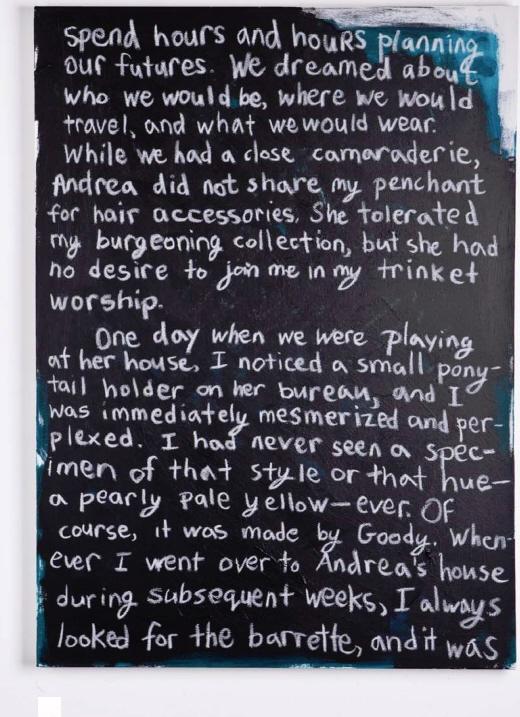 spend hours and hours planning
our futures. We dreamed about
who we would be, where we would
travel, and what we would wear.
While we had a close camaraderie,
Andrea did not share my penchant
for hair accessories. She tolerated
my burgeoning collection, but she had
no desire to join me in my trinket
worship.
One day when we were playing
at her house, I noticed a small pony-
tail holder on her bureau, and I
was immediately mesmerized and per-
plexed. I had never seen a spec-
imen of that style or that hue—
a pearly pale yellow—ever. Of
course, it was made by Goody. When-
ever I went over to Andrea's house
during subsequent weeks, I always
looked for the barrette, and it was